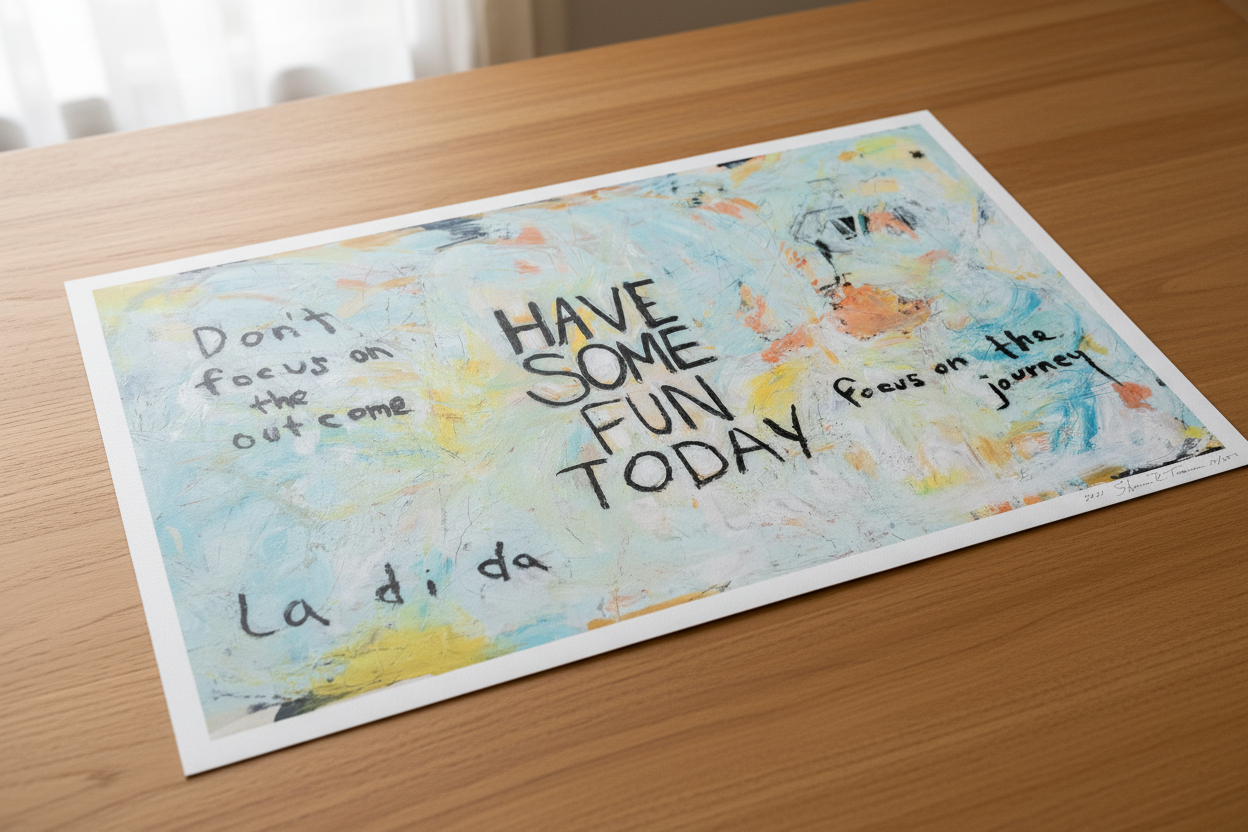 Don't
focus on
the
outcome
HAVE
SOME
FUN
TODAY
focus on the
journey
La di da
2021